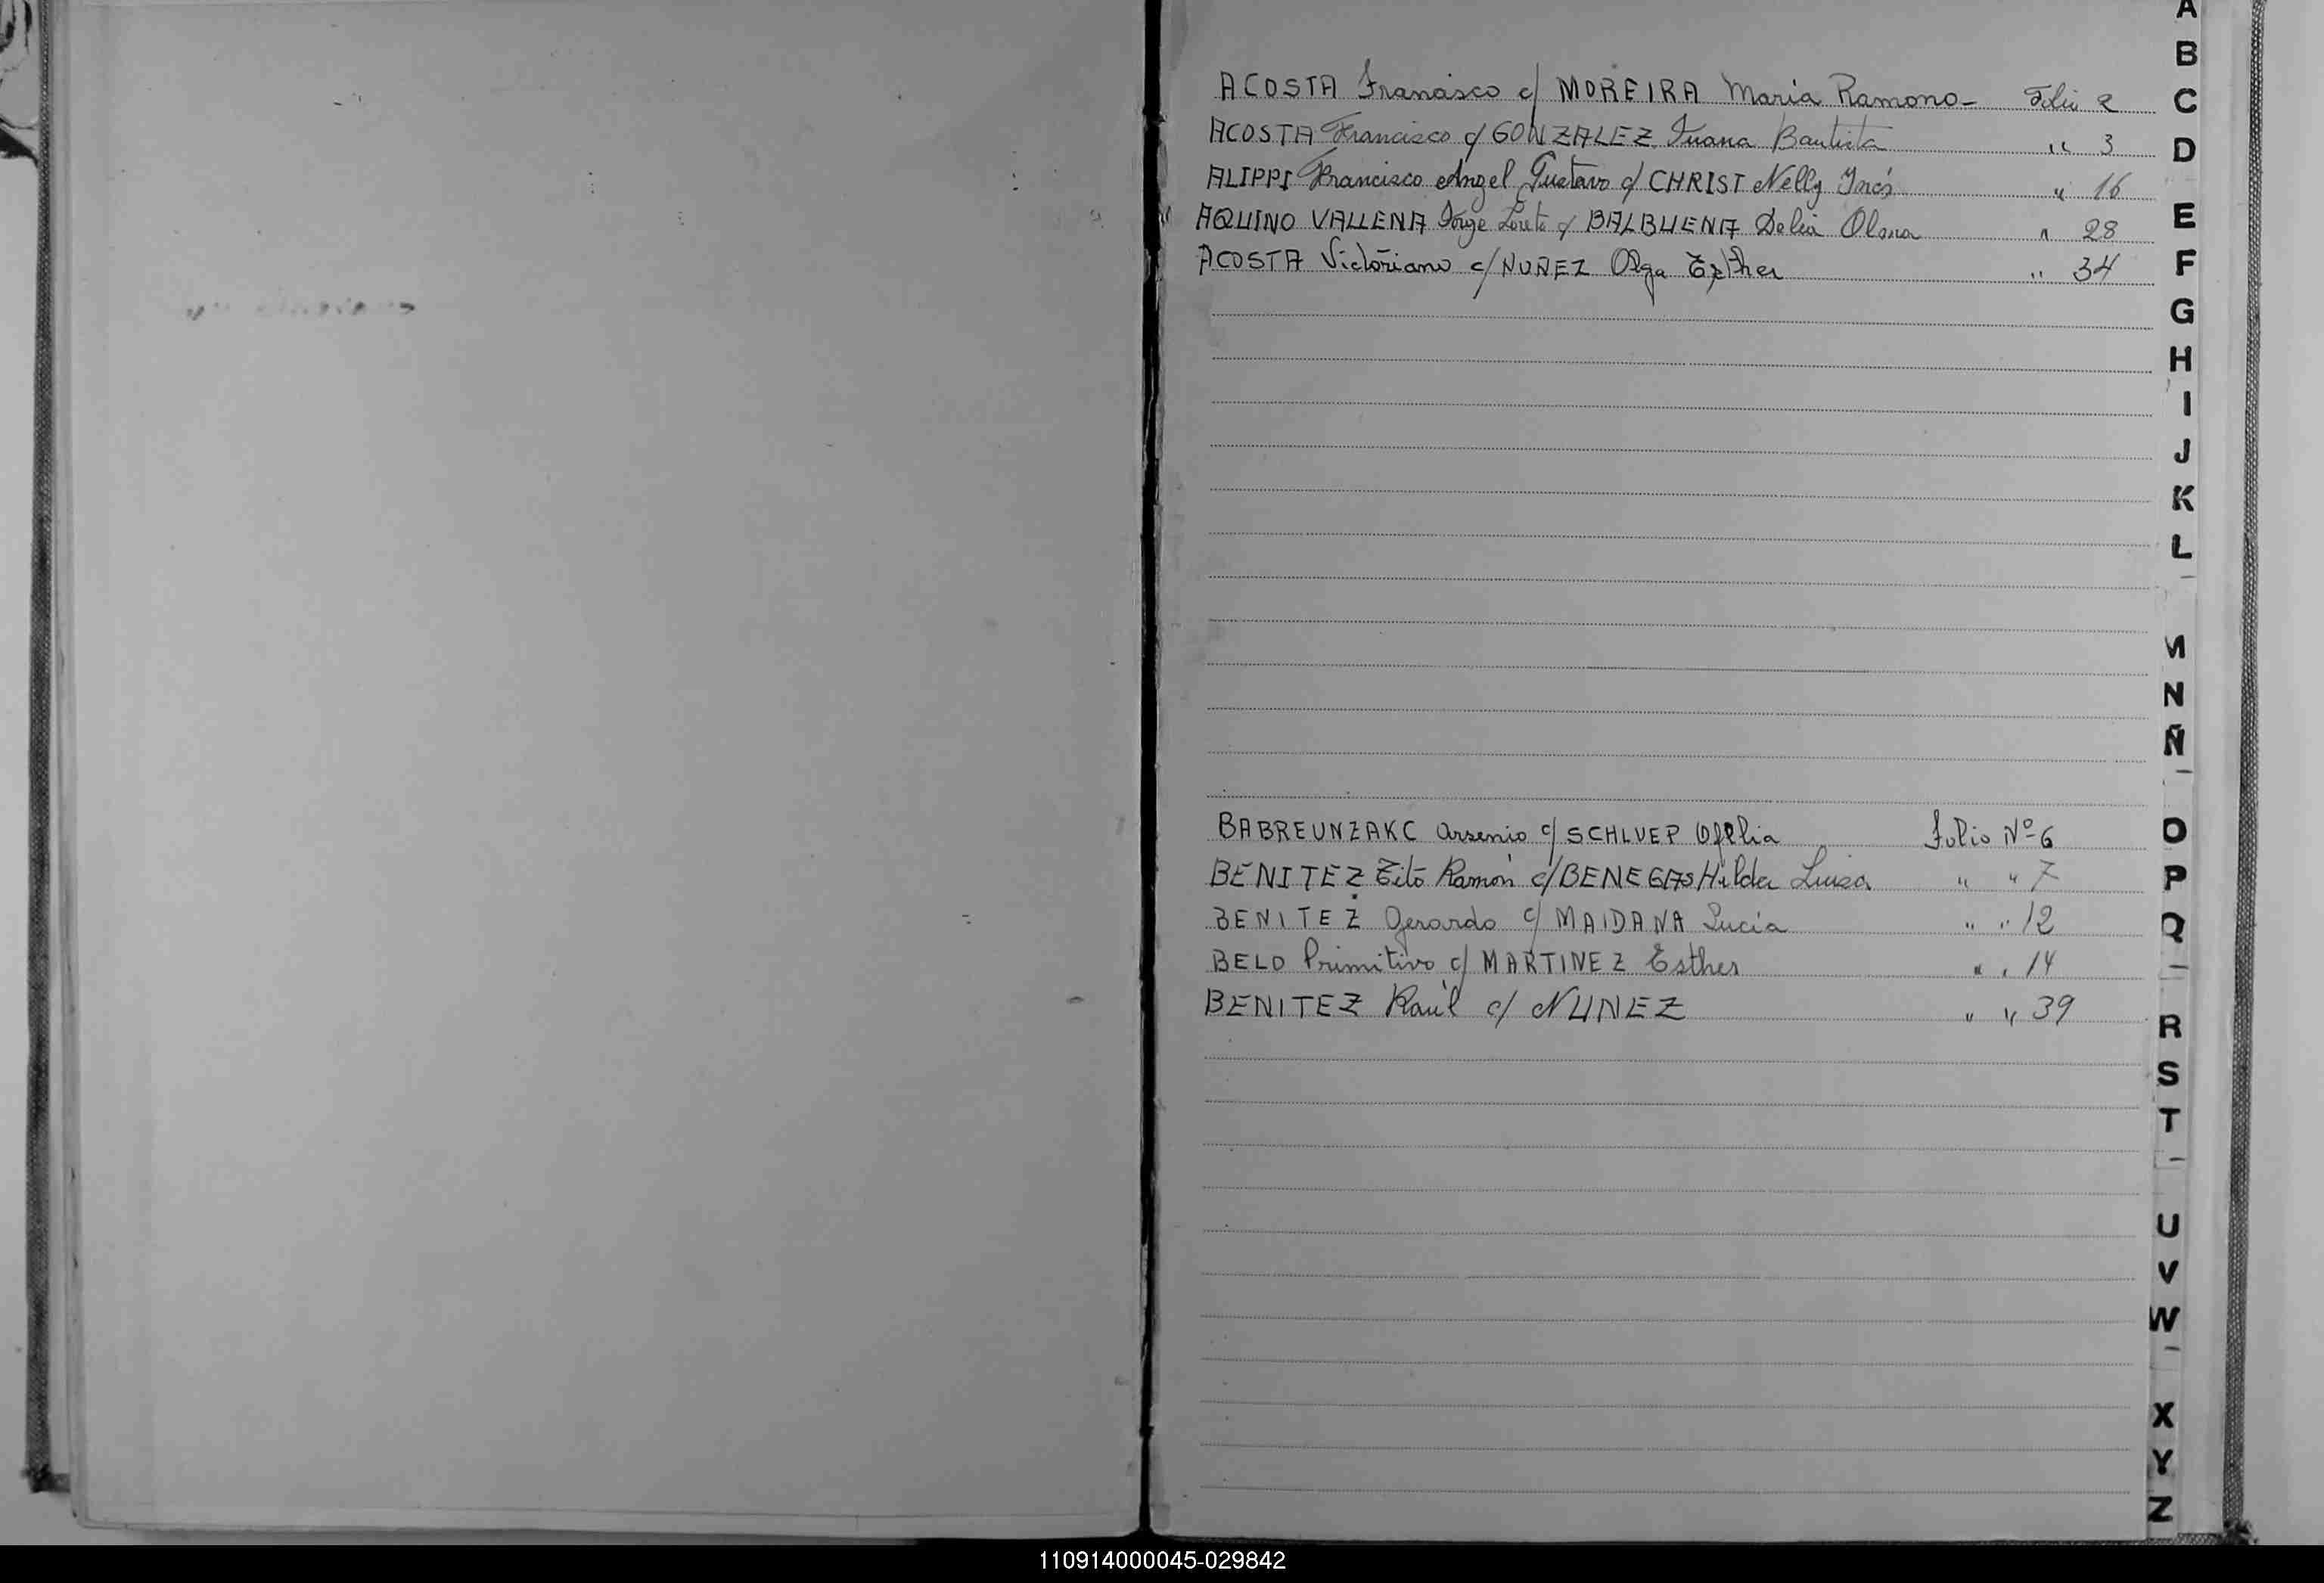 ACOSTA Francisco c/ MOREIRA Maria Ramona- Folio 2
ACOSTA Francisco c/ GONZALEZ Juana Bautista " 3
ALIPPI Francisco Angel Gustavo c/ CHRIST Nelly Inés " 16
AQUINO VALLENA Jorge Loreto c/ BALBUENA Delia " 28
ACOSTA Victoriano c/ NUÑEZ Olga Esther " 34
BABREUNZAKC Arsenio c/ SCHLUEP Ofelia Folio Nº 6
BENITEZ Tito Ramón c/ BENEGAS Hilda Luisa " " 7
BENITEZ Gerardo c/ MAIDANA Lucía " " 12
BELO Primitivo c/ MARTINEZ Esther " " 14
BENITEZ Raúl c/ NUNEZ " " 39
A
B
C
D
E
F
G
H
I
J
K
L
M
N
Ñ
O
P
Q
R
S
T
U
V
W
X
Y
Z
110914000045-029842